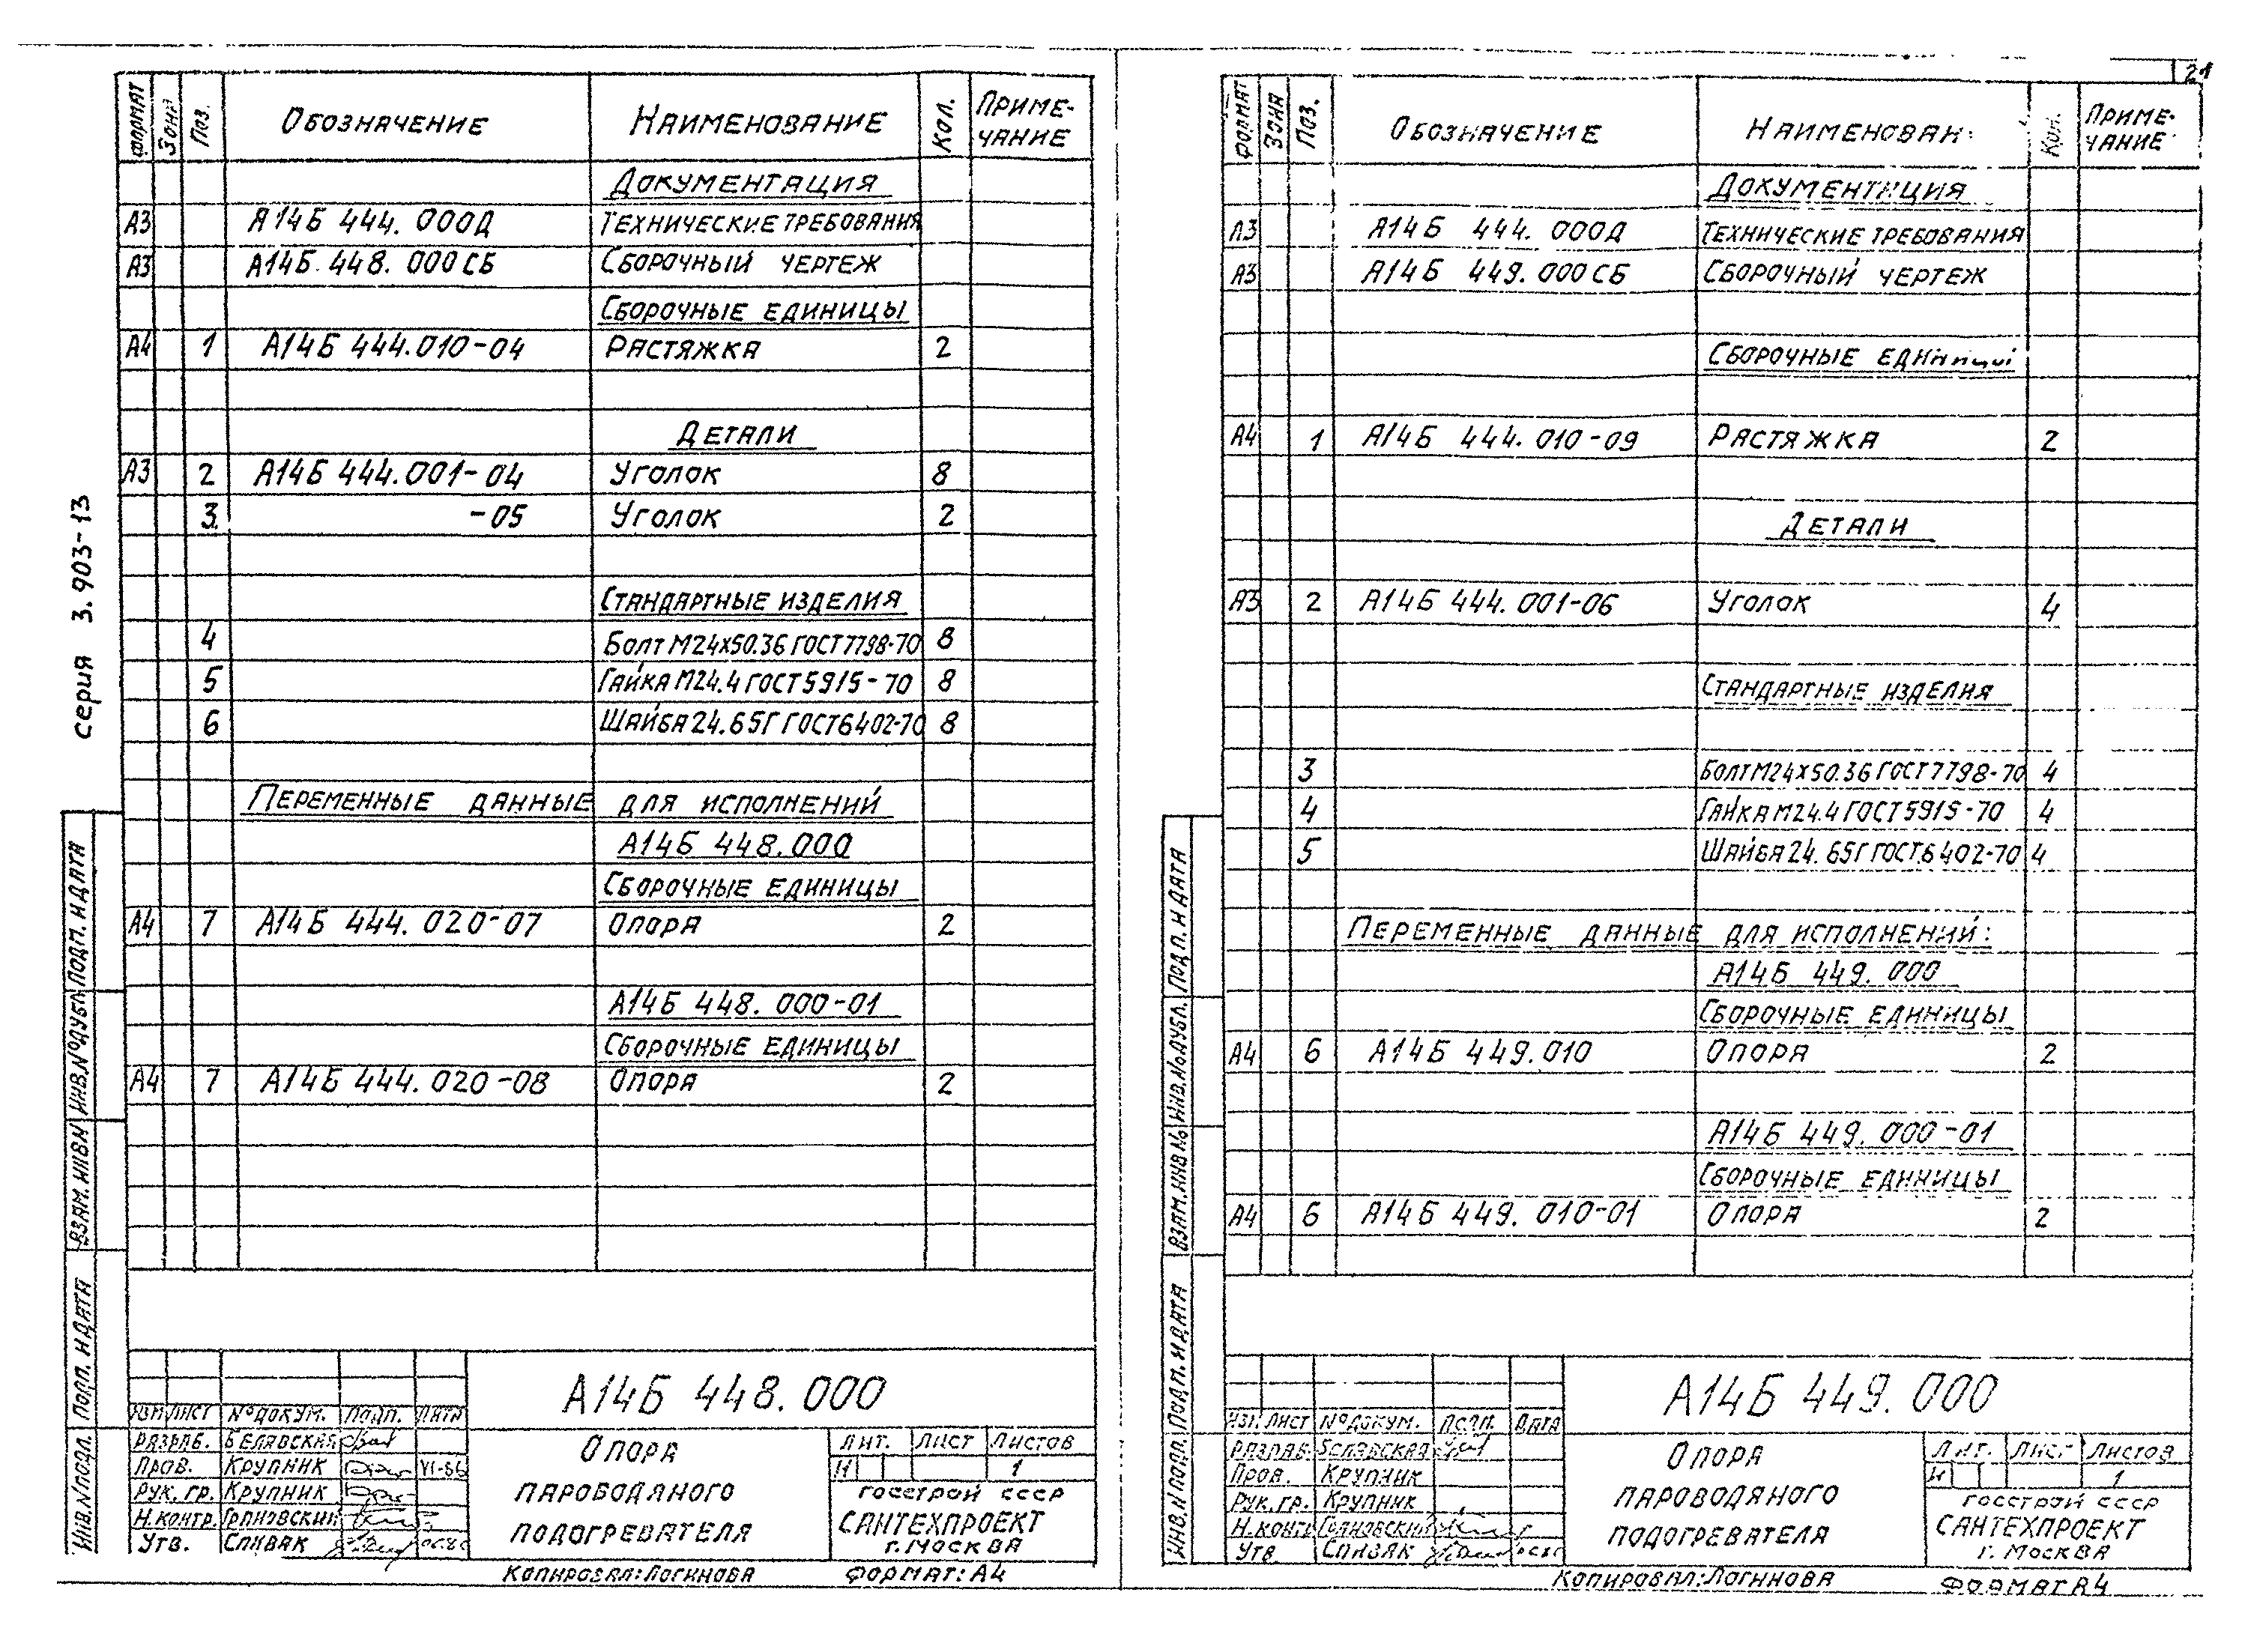 серия 3.903-13
ФОРМАТ Зона Поз. Обозначение Наименование Кол. Приме-
чание
Документация
А3 А14Б 444.000Д Технические требования
А3 А14Б 448.000СБ Сборочный чертеж
Сборочные единицы
А4 1 А14Б 444.010-04 Растяжка 2
Детали
А3 2 А14Б 444.001-04 Уголок 8
3 -05 Уголок 2
Стандартные изделия
4 Болт М24х50.36 ГОСТ 7798-70 8
5 Гайка М24.4 ГОСТ 5915-70 8
6 Шайба 24.65Г ГОСТ 6402-70 8
Переменные данные для исполнений
А14Б 448.000
Сборочные единицы
А4 7 А14Б 444.020-07 Опора 2
А14Б 448.000-01
Сборочные единицы
А4 7 А14Б 444.020-08 Опора 2
Инв.№подл. Подп. и дата Взам. инв№ Инв.№дубл. Подп. и дата
А14Б 448.000
Изм Лист №докум. Подп. Дата
Разраб. Белявская
Пров. Крупник VI-86
Рук. гр. Крупник
Н.контр. Грановский
Утв. Спивак
Опора
пароводяного
подогревателя
Лит. Лист Листов
И 1
Госстрой СССР
САНТЕХПРОЕКТ
г. Москва
Копировал: Логинова Формат: А4
21
Формат Зона Поз. Обозначение Наименован Кол. Приме-
чание
Документация
А3 А14Б 444.000Д Технические требования
А3 А14Б 449.000СБ Сборочный чертеж
Сборочные единицы
А4 1 А14Б 444.010-09 Растяжка 2
Детали
А3 2 А14Б 444.001-06 Уголок 4
Стандартные изделия
3 Болт М24х50.36 ГОСТ 7798-70 4
4 Гайка М24.4 ГОСТ 5915-70 4
5 Шайба 24.65Г ГОСТ 6402-70 4
Переменные данные для исполнений:
А14Б 449.000
Сборочные единицы
А4 6 А14Б 449.010 Опора 2
А14Б 449.000-01
Сборочные единицы
А4 6 А14Б 449.010-01 Опора 2
Инв.№подл. Подп. и дата Взам. инв№ Инв.№дубл. Подп. и дата
А14Б 449.000
Изм Лист №докум. Подп. Дата
Разраб. Белявская
Пров. Крупник
Рук. гр. Крупник
Н.контр Грановский
Утв. Спивак
Опора
пароводяного
подогревателя
Лит. Лист Листов
И 1
Госстрой СССР
САНТЕХПРОЕКТ
г. Москва
Копировал: Логинова Формат А4